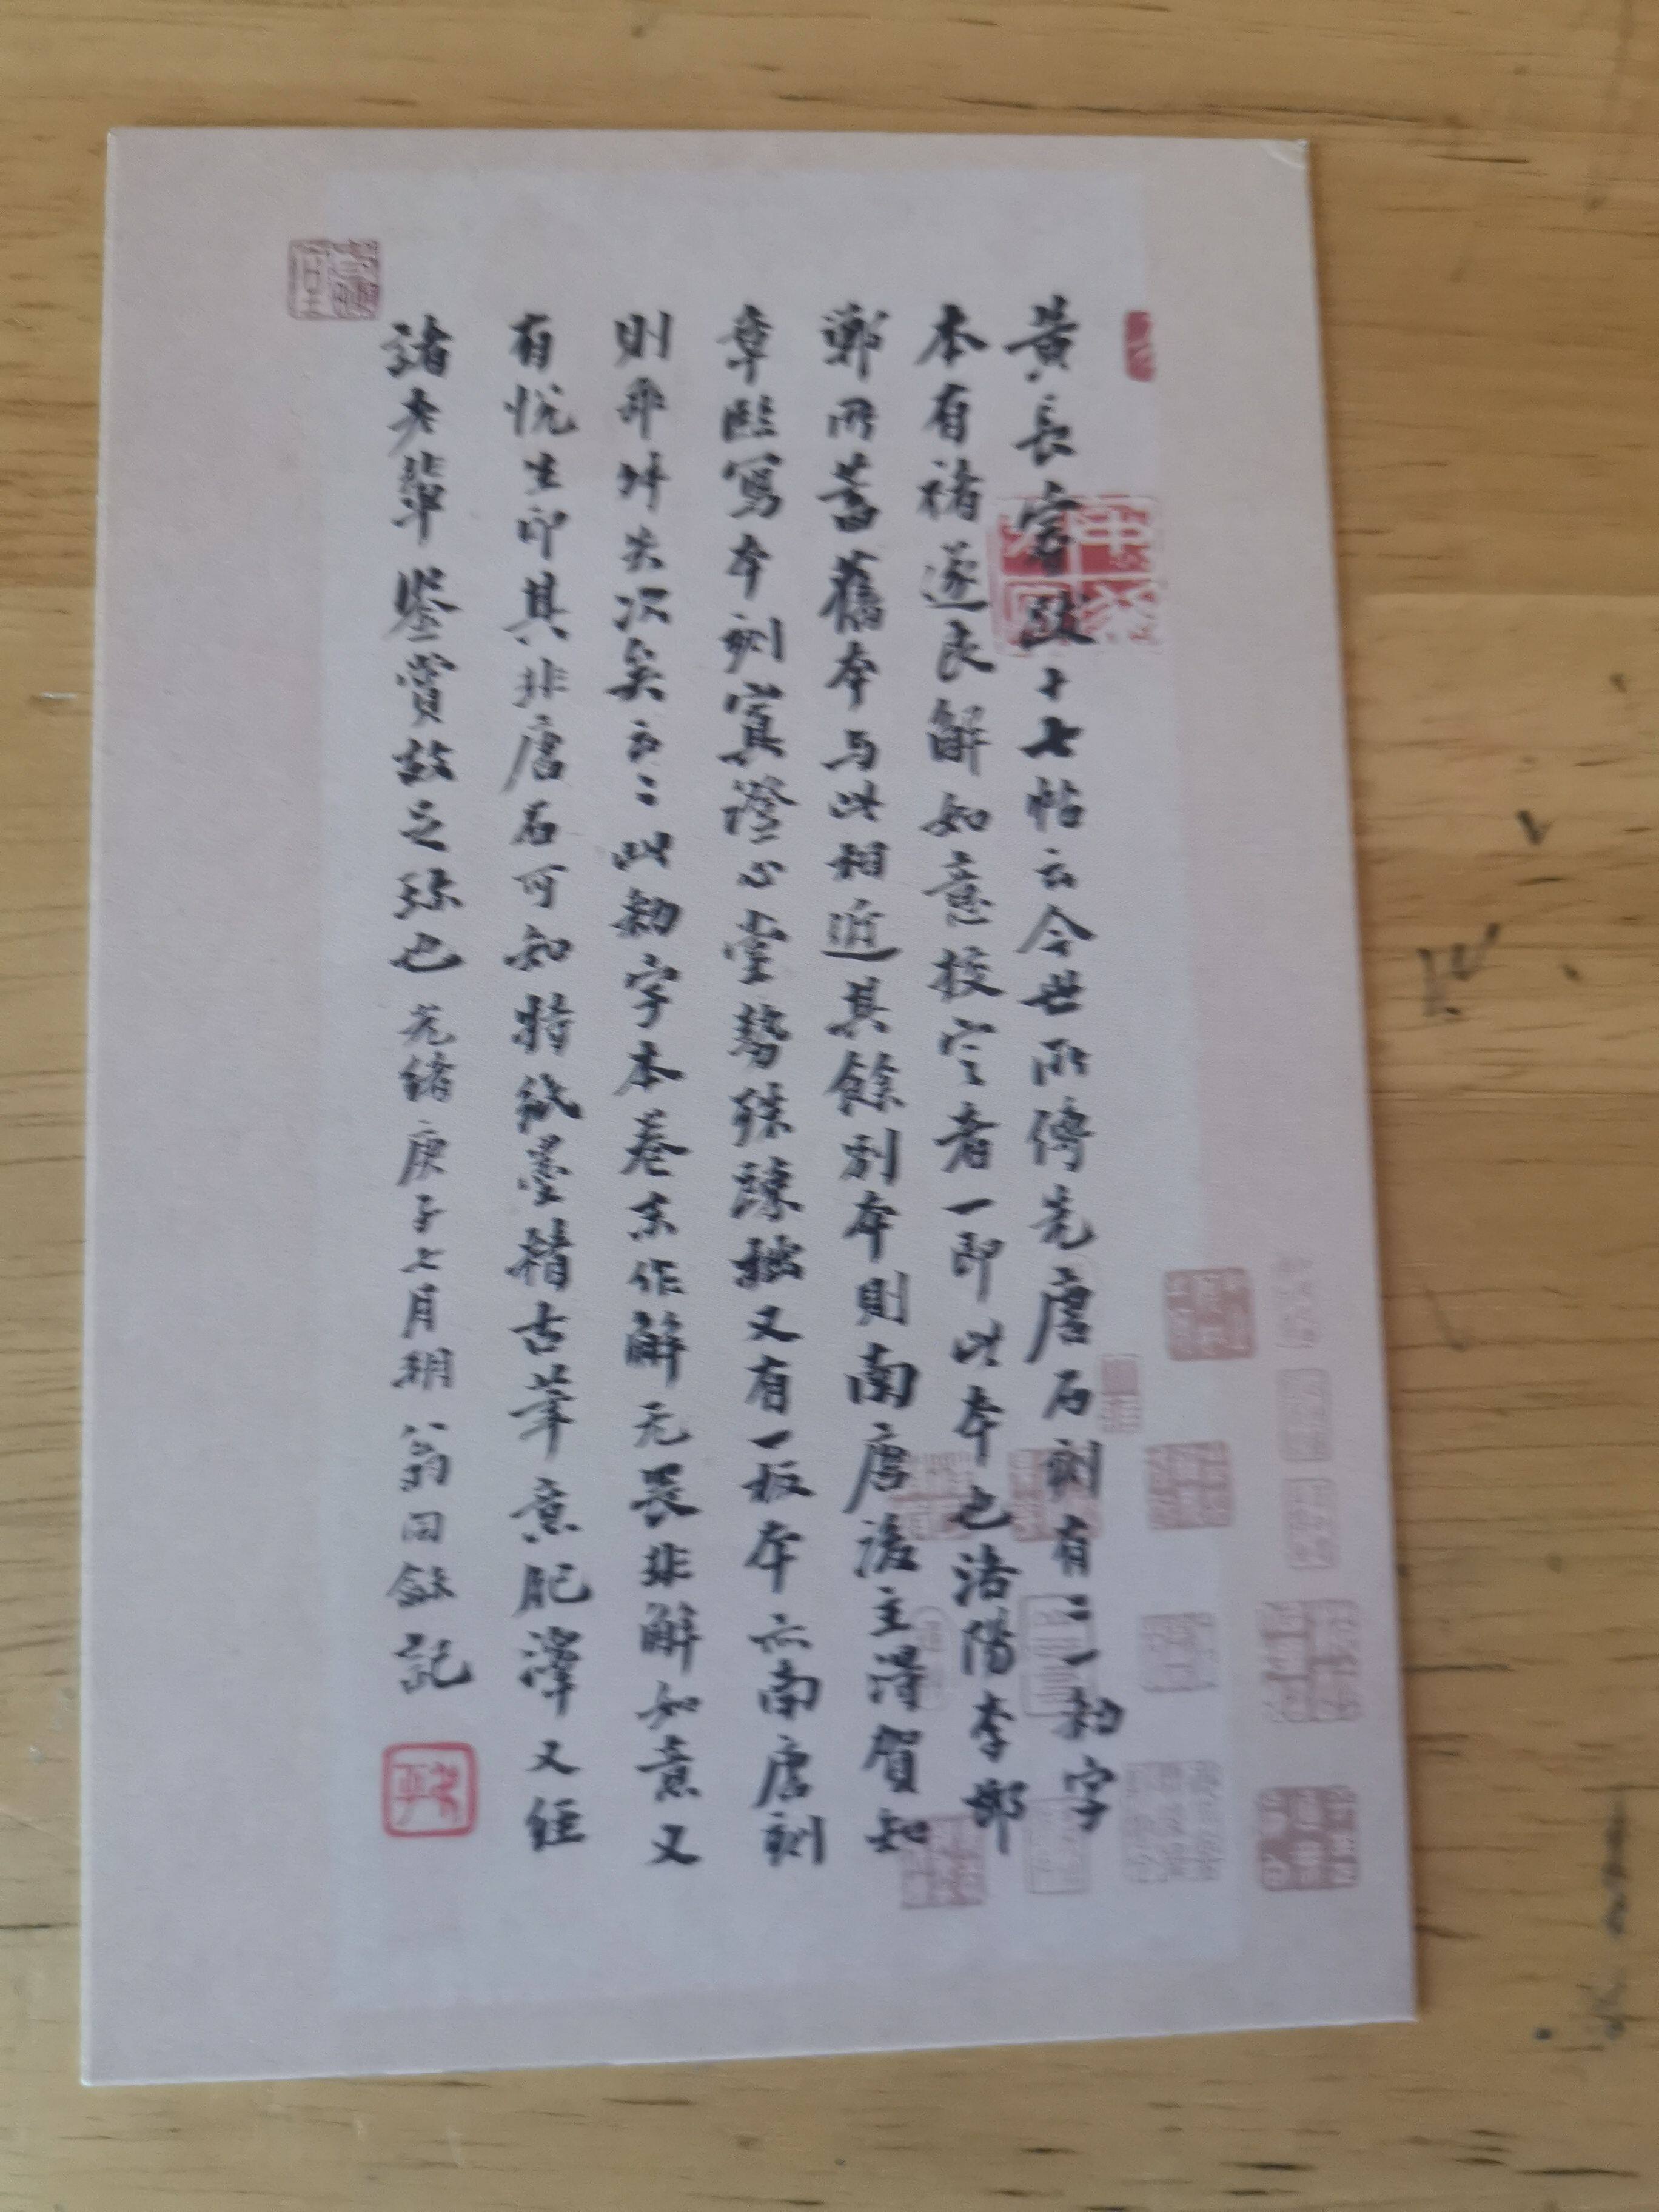 黃長睿跋十七帖云今世所傳先唐石刻有二一勅字
本有褚遂良解如意校定者一即此本也洛陽李邯
鄲所蓄舊本与此相近其餘别本則南唐後主得賀知
章臨寫本刻寘澄心堂勢殊疎拙又有一板本亦南唐刻
則卷艸失次矣云云此勅字本卷末作解无畏非解如意又
有悦生印其非唐石可知特紙墨精古筆意肥渾又經
諸老輩鑒賞故足珎也 光緒庚子七月朔 翁同龢記